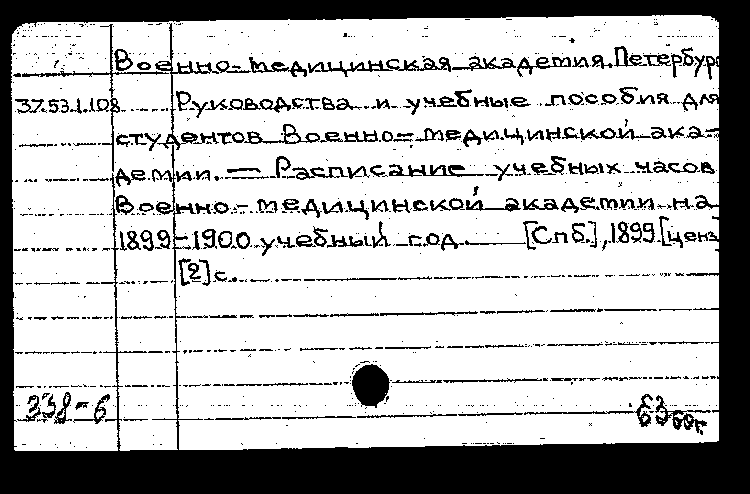 Военно-медицинская академия. Петербург
37.53.1.108 Руководства и учебные пособия для
студентов Военно-медицинской ака-
демии. — Расписание учебных часов
Военно-медицинской академии на
1899-1900 учебный год. [Спб.], 1899 [ценз
[2] с.
338-6